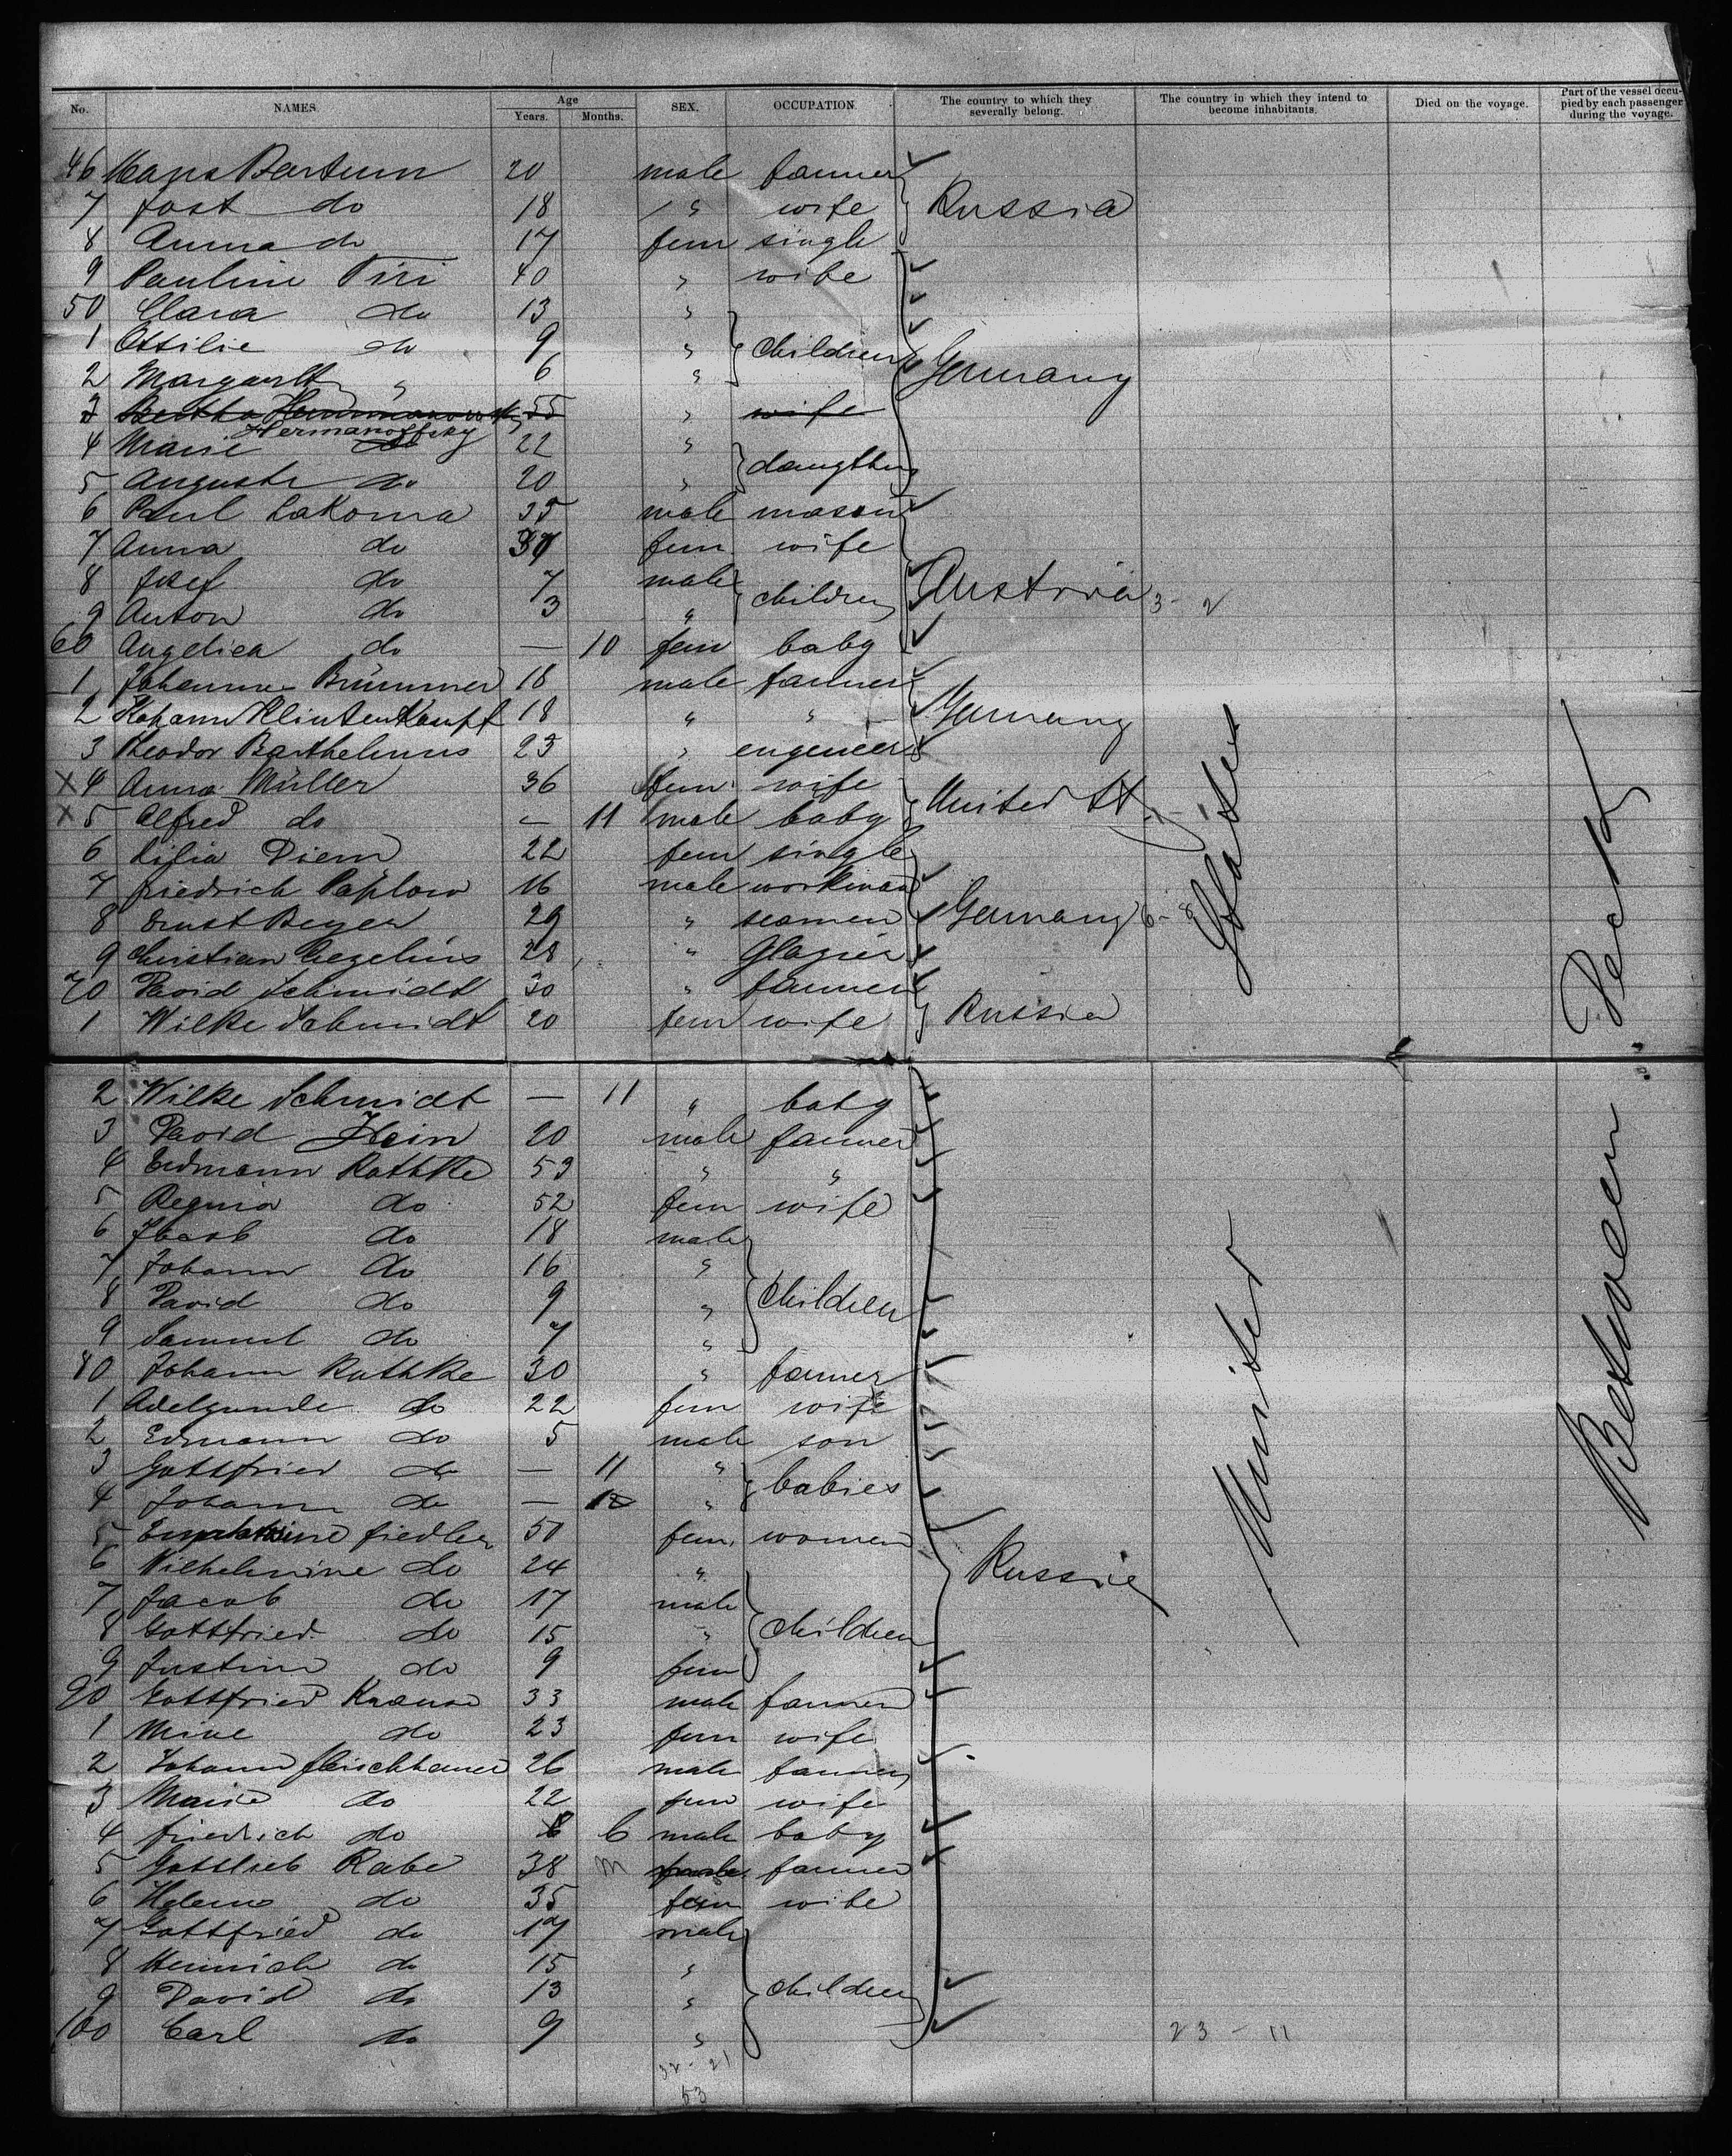 No. NAMES Age Years. Months. SEX. OCCUPATION The country to which they severally belong. The country in which they intend to become inhabitants. Died on the voyage. Part of the vessel occupied by each passenger during the voyage.
46 Hans Bartum 20 male farmer
7 Jost do 18 " wife Russia
8 Anna do 17 fem single
9 Pauline Piri 40 " wife
50 Clara do 13 "
1 Ottilie do 9 " children
2 Margareth " 6 " Germany
3 Bertha 55 " wife
Hermanoffsky
4 Marie do 22 "
daugther
5 Auguste do 20 "
6 Paul Lakoma 35 male mason
7 Anna do 37 fem. wife
8 Josef do 7 male children Austria 3 - 2
9 Anton do 3 "
60 Angelica do — 10 fem baby
1 Johannes Brümmer 18 male farmer
2 Johann Klintenkampf 18 " " Germany
3 Theodor Barthelmus 23 " engeneer
X 4 Anna Müller 36 fem. wife United St
X 5 Alfred do — 11 male baby
6 Lilia Diem 22 fem single
7 Friedrich Paplow 16 male workman
8 Ernst Beyer 29 " seamen Germany 6 - 8
9 Christian Cezelius 28 " Glazier
70 David Schmidt 30 " farmer
1 Wilke Schmidt 20 fem wife Russia
2 Wilke Schmidt — 11 " baby
3 David Hein 20 male farmer
4 Erdmann Rathke 59 " "
5 Regina do 52 fem wife
6 Jacob do 18 male
7 Johann do 16 "
8 David do 9 " children
9 Samuel do 7 "
80 Johann Rathke 30 " farmer
1 Adelgunde do 22 fem wife
2 Edmann do 5 male son
3 Gottfried do — 11 " babies
4 Johann do — "
5 Fiedler 50 fem. women
6 Wilhelmine do 24 " Russia
7 Jacob do 17 male
8 Gottfried do 15 " children
9 Justine do 9 fem
90 Gottfried Krause 33 male farmer
1 Mine do 23 fem wife
2 Johann Fleischhauer 26 male farmer
3 Marie do 22 fem wife
4 Friedrich do 6 male baby
5 Gottlieb Rabe 38 m farmer
6 Helene do 35 fem wife
7 Gottfried do 17 male
8 Heinrich do 15 "
9 David do 13 " children
100 Carl do 9 "
23 - 11
32 - 21
53
United States
Between Decks